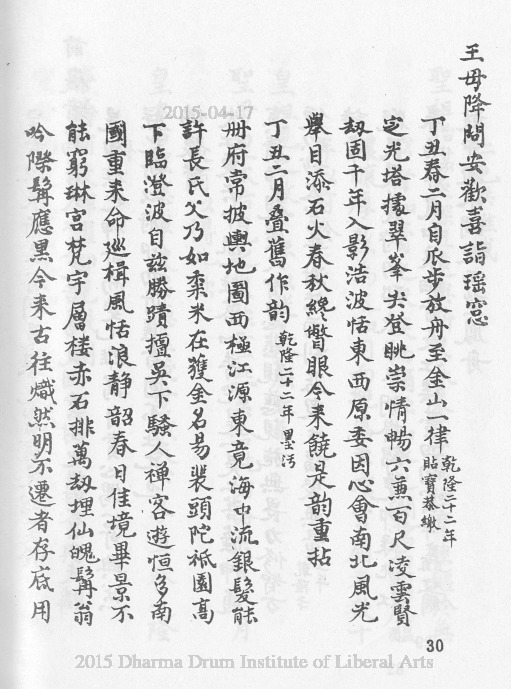 王母降問安歡喜詣瑤窓
丁丑春二月自瓜步放舟至金山一律 乾隆二十二年貼寶恭繳
定光塔據翠峯尖登眺崇情暢六兼百尺凌雲賢
刼固千年入影浩波恬東西原委因心會南北風光
舉目添石火春秋纔瞥眼今来饒是韵重拈
丁丑二月叠舊作韵 乾隆二十二年墨污
册府常披輿地圖西極江源東竟海中流銀髮能
許長氏父乃如粟米在獲金名易裴頭陀祇園髙
下臨澄波自兹勝蹟擅吳下騷人禅客遊恒多南
國重来命廵楫風恬浪静韶春日佳境畢景不
能窮琳宫梵宇層楼赤石排萬刼埋仙魄髯翁
吟際髯應黒今来古往熾然明不遷者存底用
30
2015-04-17
2015 Dharma Drum Institute of Liberal Arts